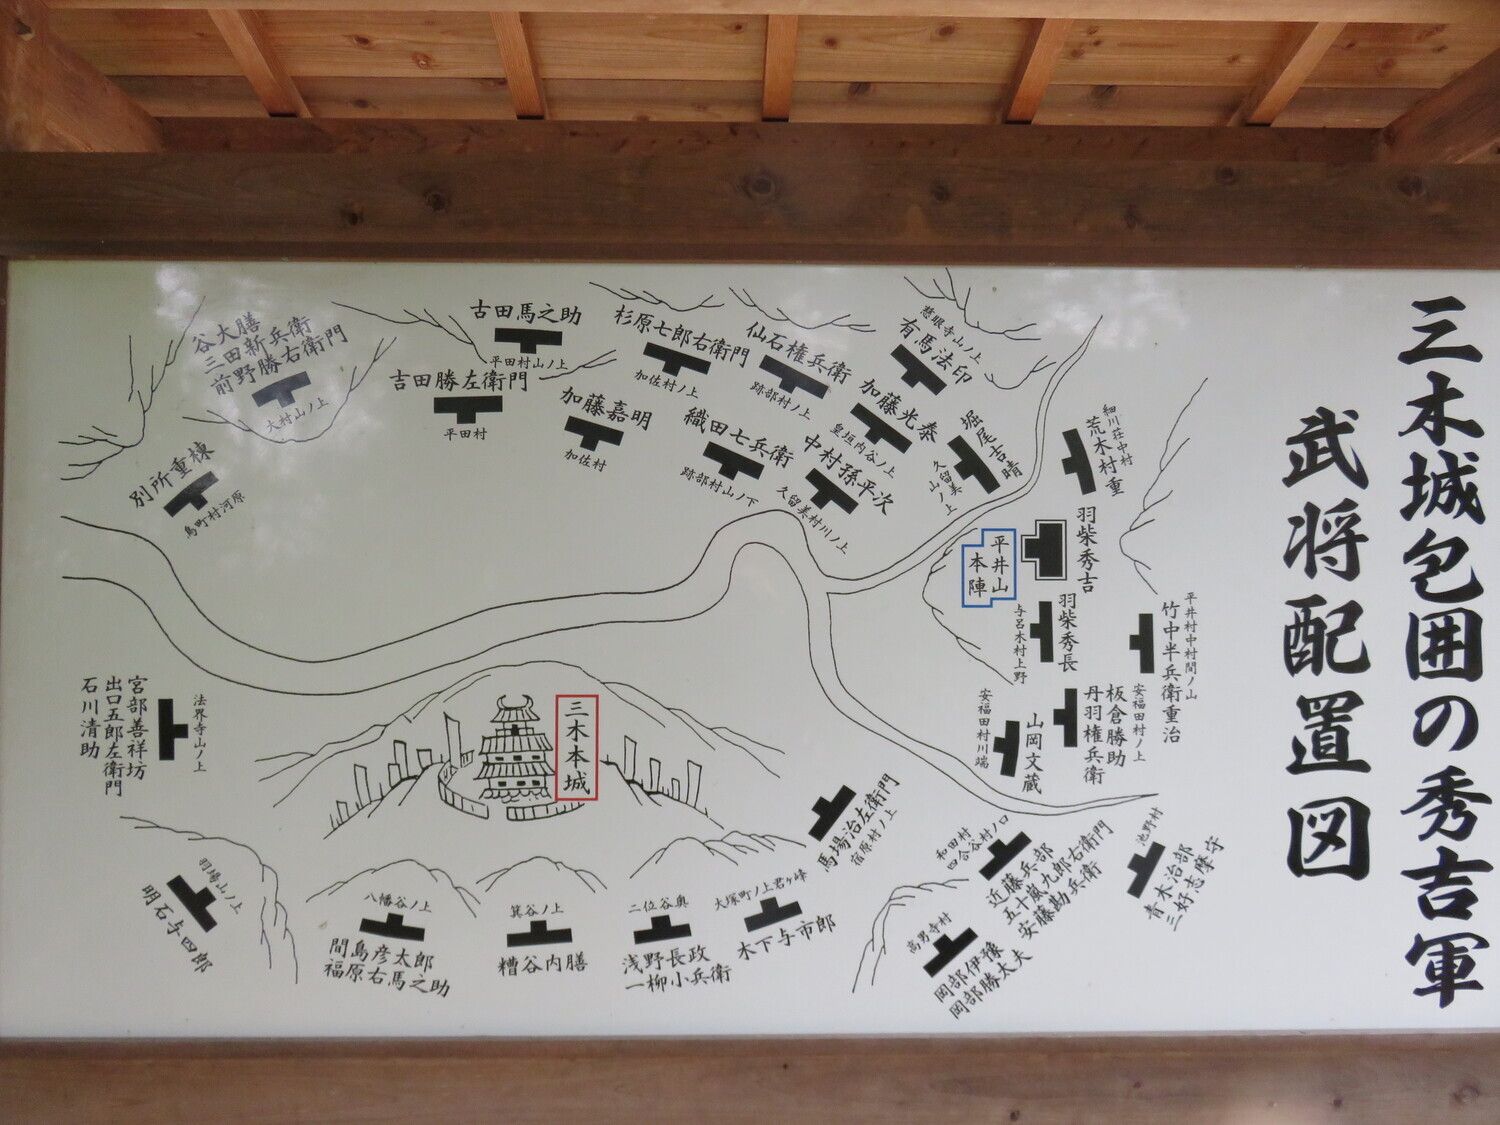 三木城包囲の秀吉軍
武将配置図
谷大膳
三田新兵衛
前野勝右衛門
大村山ノ上
別所重棟
鳥町村河原
古田馬之助
平田村山ノ上
吉田勝左衛門
平田村
杉原七郎右衛門
加佐村ノ上
加藤嘉明
加佐村
仙石権兵衛
跡部村ノ上
織田七兵衛
跡部村山ノ下
慈眼寺山ノ上
有馬法印
加藤光泰
皇垣内谷ノ上
中村孫平次
久留美村川ノ上
堀尾吉晴
久留美
山ノ上
細川荘中村
荒木村重
羽柴秀吉
平井山
本陣
羽柴秀長
与呂木村上野
平井村中村間ノ山
竹中半兵衛重治
安福田村ノ上
板倉勝助
丹羽権兵衛
山岡文蔵
安福田村川端
三木本城
法界寺山ノ上
宮部善祥坊
出口五郎左衛門
石川清助
羽場山ノ上
明石与四郎
八幡谷ノ上
間島彦太郎
福原右馬之助
箕谷ノ上
糟谷内膳
二位谷奥
浅野長政
一柳小兵衛
大塚町ノ上君ヶ峰
木下与市郎
馬場治左衛門
宿原村ノ上
和田村
四合谷村ノ口
近藤兵部
五十嵐九郎右衛門
安藤勘兵衛
高男寺村
岡部伊豫
岡部勝太夫
池野村
青木治部
三好志摩守